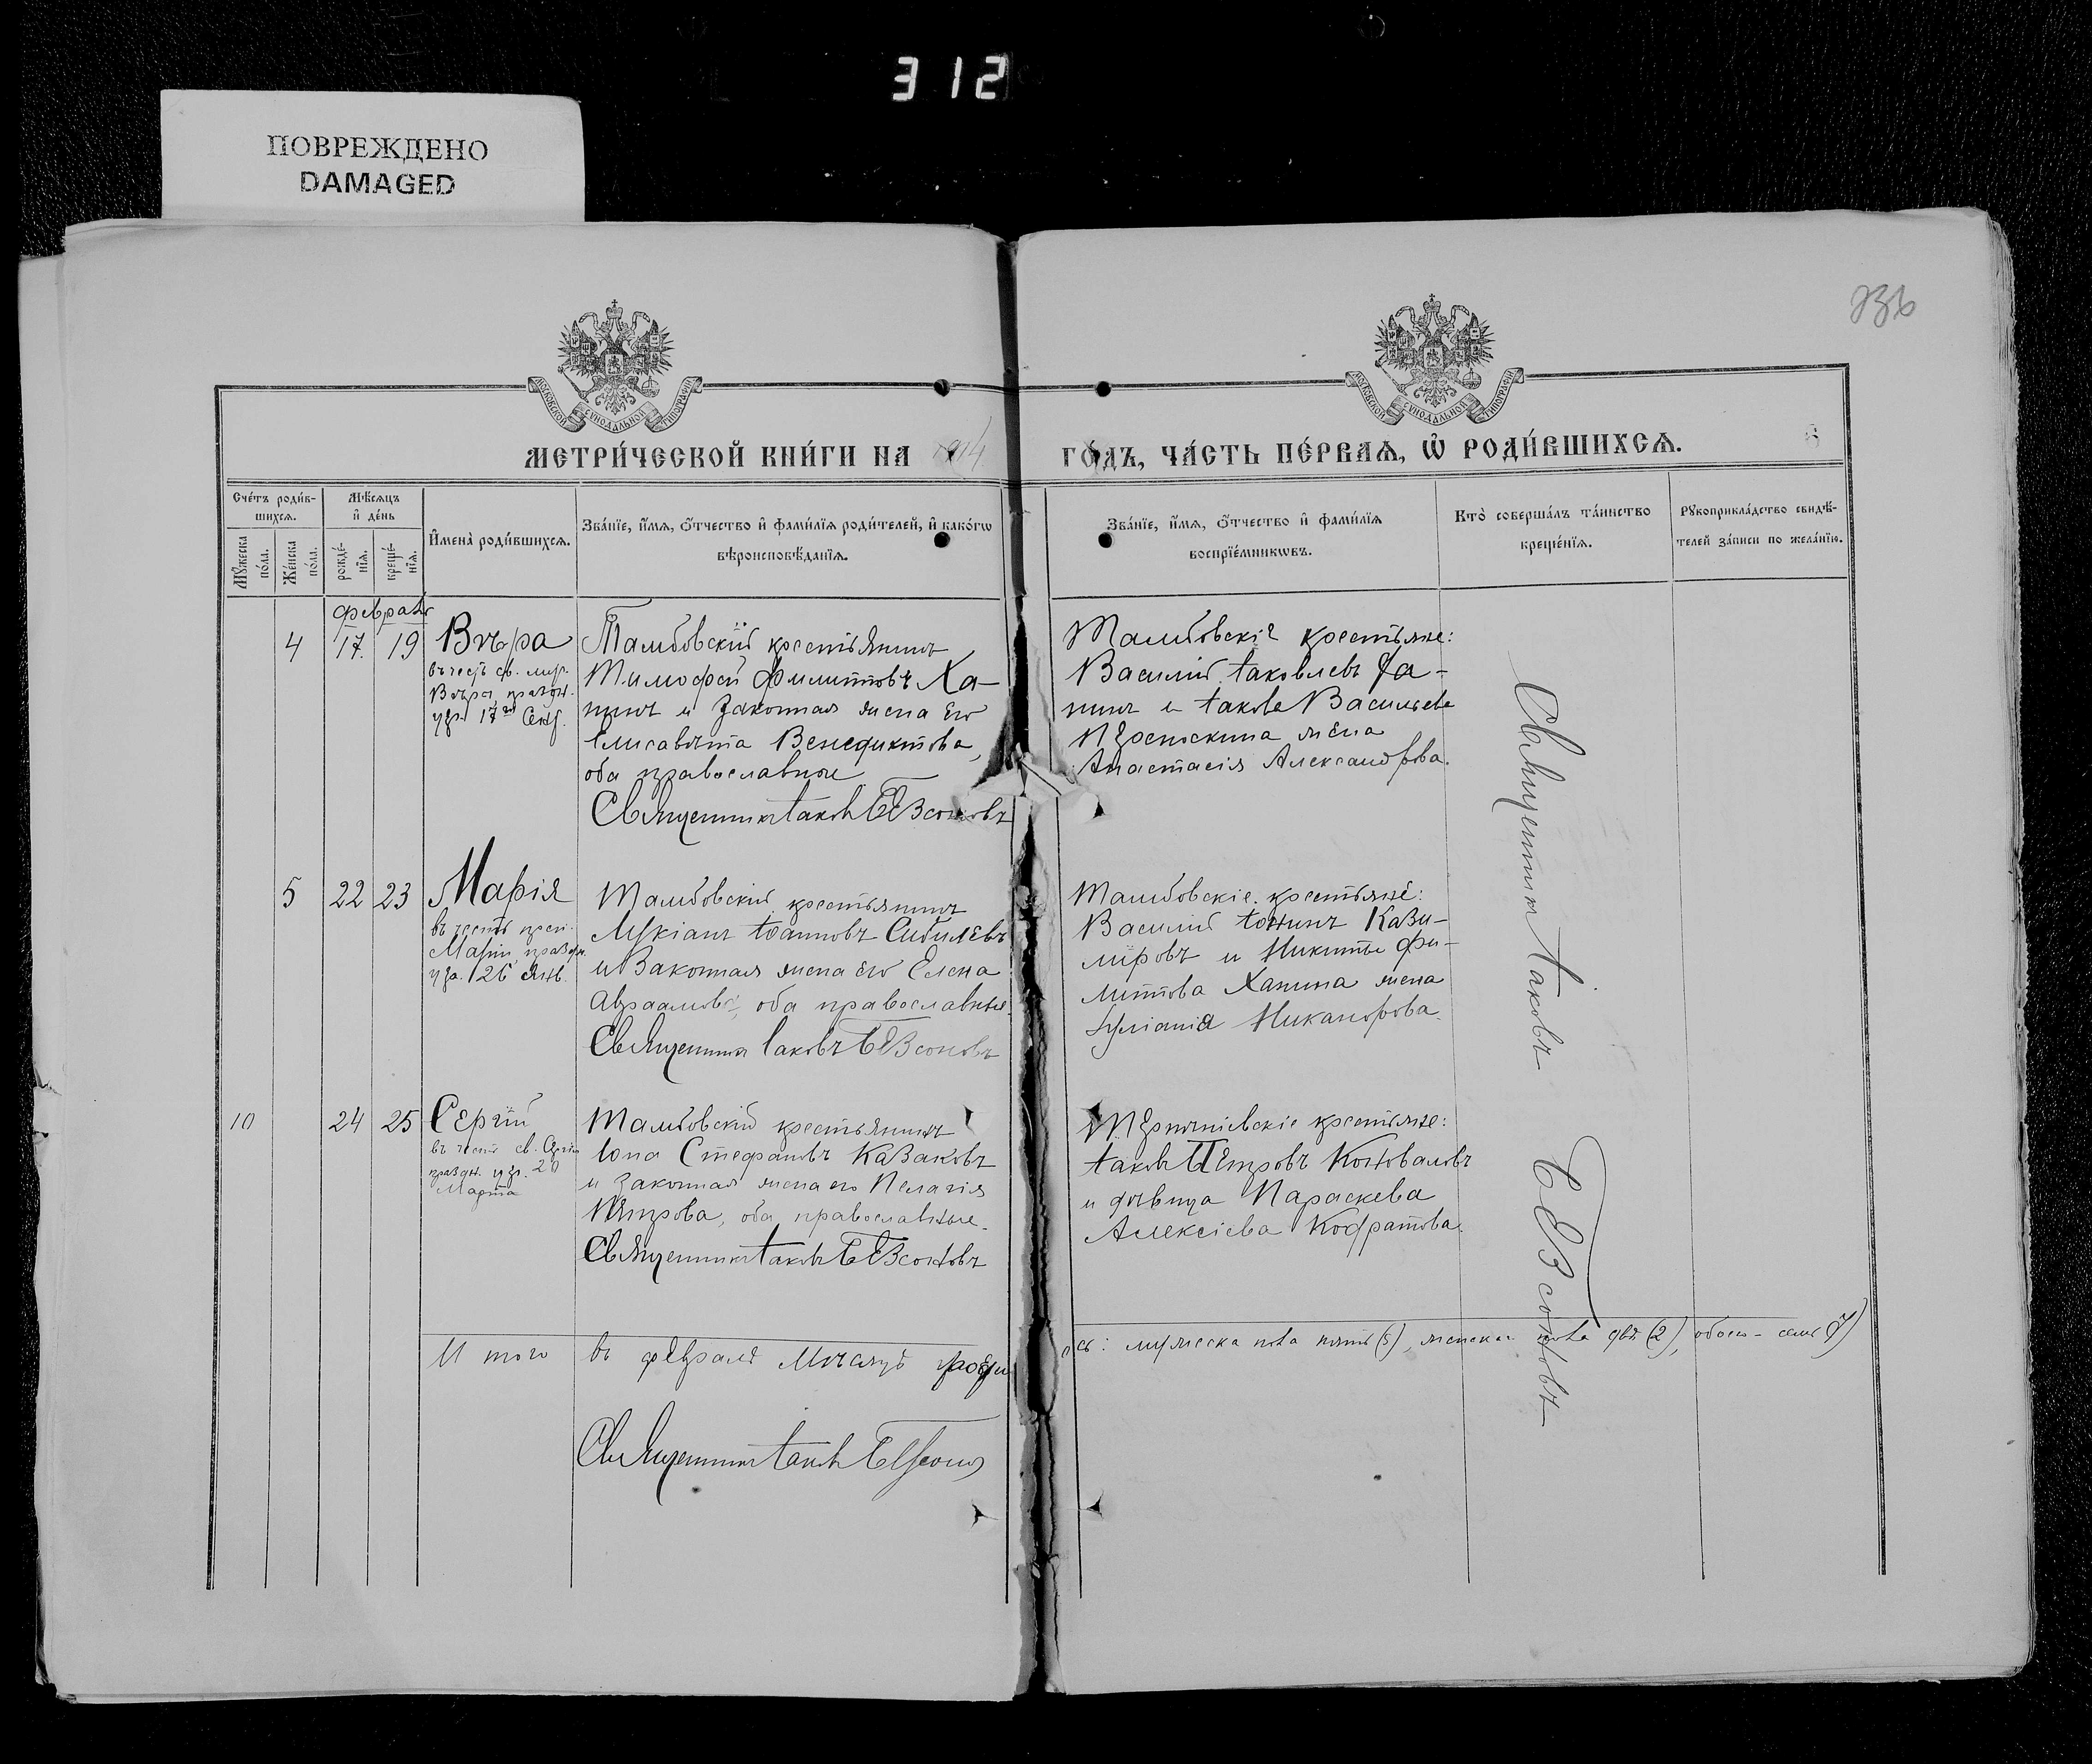 312
ПОВРЕЖДЕНО
DAMAGED
236
МОСКОВСКОЙ СѴНОДАЛЬНОЙ ТИПОГРАФІИ
МОСКОВСКОЙ СѴНОДАЛЬНОЙ ТИПОГРАФІИ
МЕТРИ́ЧЕСКОЙ КНИ́ГИ НА 1914 ГО́ДЪ, ЧА́СТЬ ПЕ́РВАѦ, Ѡ҆ РОДИ́ВШИХСѦ.
Сче́тъ роди́в-
шихсѧ.
Мѣ́сѧцъ
и҆ де́нь
Мꙋ́жеска
по́ла.
Же́нска
по́ла.
рожде́-
нїѧ.
креще́-
нїѧ.
И҆мена̀ роди́вшихсѧ.
Зва́нїе, и҆́мѧ, ѻ҆́тчество и҆ фами́лїѧ роди́телей, и҆ како́гѡ
вѣроисповѣ́данїѧ.
Зва́нїе, и҆́мѧ, ѻ҆́тчество и҆ фами́лїѧ
воспрїе́мникѡвъ.
Кто̀ соверша́лъ та́инство
креще́нїѧ.
Рꙋкоприкла́дство свидѣ́-
телей за́писи по жела́нїю.
Февраль
4 17. 19 Вѣра
въ честь св. муч.
Вѣры, праздн.
17го Сент.
Тамбовскій крестьянинъ
Тимофей Филипповъ Ха-
нинъ и законная жена его
Елисавета Венедиктова,
оба православные
Священникъ Іаковъ Бѣзсоновъ
Тамбовскіе крестьяне:
Василій Іаковлевъ Ха-
нинъ и Іакова Васильева
жена
Анастасія Александрова.
5 22 23 Марія
въ честь преп.
Маріи, праздн.
26 Янв.
Тамбовскій крестьянинъ
Лукіанъ Іоанновъ Сибилевъ
и законная жена его Елена
Авраамова, оба православные.
Священникъ Іаковъ Бѣзсоновъ
Тамбовскіе крестьяне:
Василій Іонинъ Кази-
міровъ и Никиты Фи-
липпова Ханина жена
Іуліанія Никанорова.
10 24 25 Сергій
въ честь св. Сергія
праздн. 20
Марта
Тамбовскій крестьянинъ
Іона Стефановъ Казаковъ
и законная жена его Пелагія
Петрова, оба православные.
Священникъ Іаковъ Бѣзсоновъ
крестьяне:
Іаковъ Петровъ Коноваловъ
и дѣвица Параскева
Алексіева
Священникъ Іаковъ Бѣзсоновъ
Итого въ Февралѣ мѣсяцѣ родилось: мужеска пола пять (5), женска пола двѣ (2), обоего - семь (7)
Священникъ Іаковъ Бѣзсоновъ